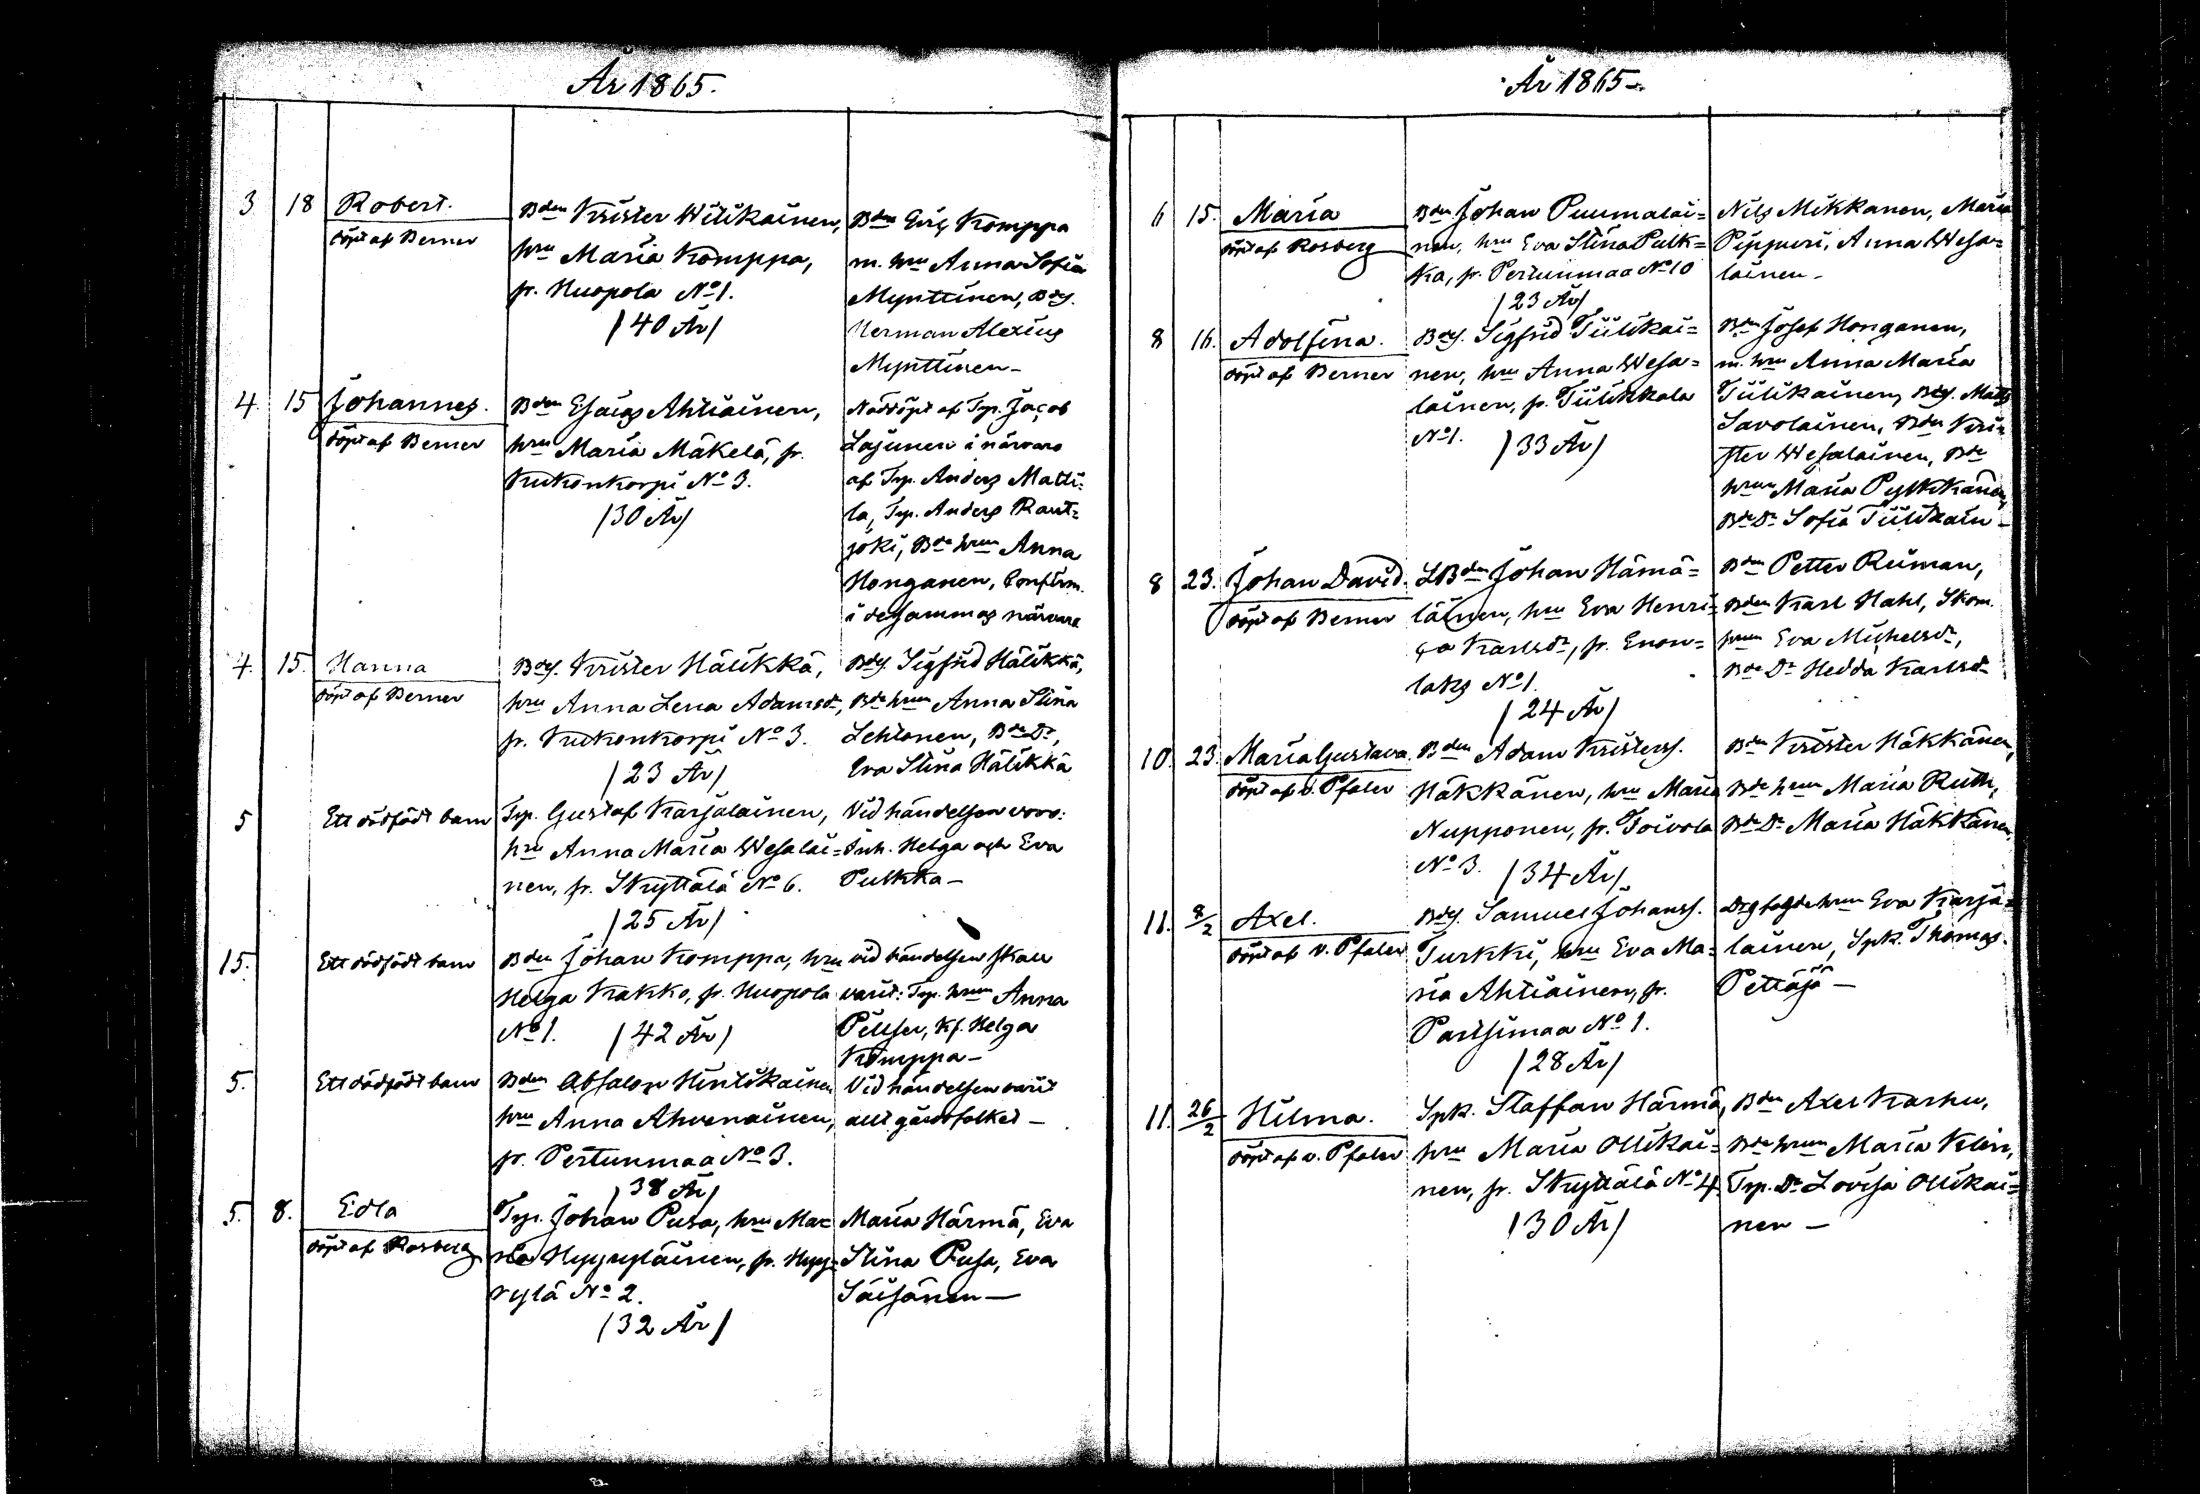 År 1865.
3 18 Robert.
döpt af Berner
Bden Krister Wilikainen,
hru Maria Komppa,
fr. Kuopola No 1.
/40 År/
Bden Eric Komppa
m. hru Anna Sofia
Mynttinen, Bdes.
Herman Alexius
Mynttinen –
4. 15 Johannes.
döpt af Berner
Bden Esaias Ahtiainen,
hru Maria Mäkelä, fr.
Kukonkorpi No 3.
/30 År/
Nöddöpt af Trp. Jacob
Lajunen i närvaro
af Trp. Anders Matti-
la, Trp. Anders Raut-
joki, Bde hrun Anna
Honganen, Confirm.
i desammas närvaro
4. 15. Hanna
döpt af Berner
Bdes. Krister Hälikkä,
hru Anna Lena Adamsdr,
fr. Kukonkorpi No 3.
/23 År/
Bdes. Sigfrid Hälikkä,
Bde hrun Anna Stina
Lehtonen, Bde Dr,
Eva Stina Hälikkä
5 Ett dödfödt barn
Trp. Gustaf Karjalainen,
hru Anna Maria Wesalai=
nen, fr. Skyttälä No 6.
/25 År/
Vid händelsen voro:
Inh. Helga och Eva
Pulkka –
15. Ett dödfödt barn
Bden Johan Komppa, hru
Helga Kakko, fr. Kuopola
No 1. /42 År/
vid händelsen skall
varit: Trp. hrun Anna
Pellse, Kf. Helga
Komppa –
5. Ett dödfödt barn
Bden Absalon Hintikainen
hru Anna Ahvenainen,
fr. Pertunmaa No 3.
/38 År/
Vid händelsen varit
allt gårdsfolket –
5. 8. Edla
döpt af Rosberg
Trp. Johan Pusa, hru Ma=
ria Hyyryläinen, fr. Hyy=
rylä No 2.
/32 År/
Maria Härmä, Eva
Stina Pusa, Eva
Säisänen –
År 1865 –
6 15. Maria
döpt af Rosberg
Bden Johan Puumalai=
nen, hru Eva Stina Pulk=
ka, fr. Pertunmaa No 10
/23 År/
Nils Mikkanen, Maria
Pippuri, Anna Wesa=
lainen –
8 16. Adolfina.
döpt af Berner
Bdes. Sigfrid Tiilikai=
nen, hru Anna Wesa=
lainen, fr. Tiilikkala
No 1. /33 År/
Bden Josef Honganen,
m. hru Anna Maria
Tiilikainen, Bdes. Matts
Savolainen, Bden Kri=
ster Wesalainen, Bde
hrun Maria Pylkkänen,
Bde Dr Sofia Tiilikain –
8 23. Johan David.
döpt af Berner
LBden Johan Hämä=
läinen, hru Eva Henri=
ca Karlsdr, fr. Enon=
laks No 1.
/24 År/
Bden Petter Riiman,
Bden Karl Hahl, Skom.
hrun Eva Michelsdr,
Bde Dr Hedda Karlsdr
10. 23. Maria Gustava.
döpt af v. Pfaler
Bden Adam Kristers.
Häkkänen, hru Maria
Nupponen, fr. Toivola
No 3. /34 År/
Bden Krister Häkkänen,
Bde hrun Maria Ruth,
Bde Dr Maria Häkkänen,
11. 8/2 Axel.
döpt af v. Pfaler
Bdes. Samuel Johans.
Turkki, hru Eva Ma=
ria Ahtiainen, fr.
Partsimaa No 1.
/28 År/
hrun Eva Karja=
lainen, Spk. Thomas
Pettäjä –
11. 26/2 Hilma.
döpt af v. Pfaler
Spk. Staffan Härmä,
hru Maria Ollikai=
nen, fr. Skyttälä No 4
/30 År/
Bden Axel Karhu,
Bde hrun Maria Klén,
Trp. Dr Lovisa Ollikai=
nen –